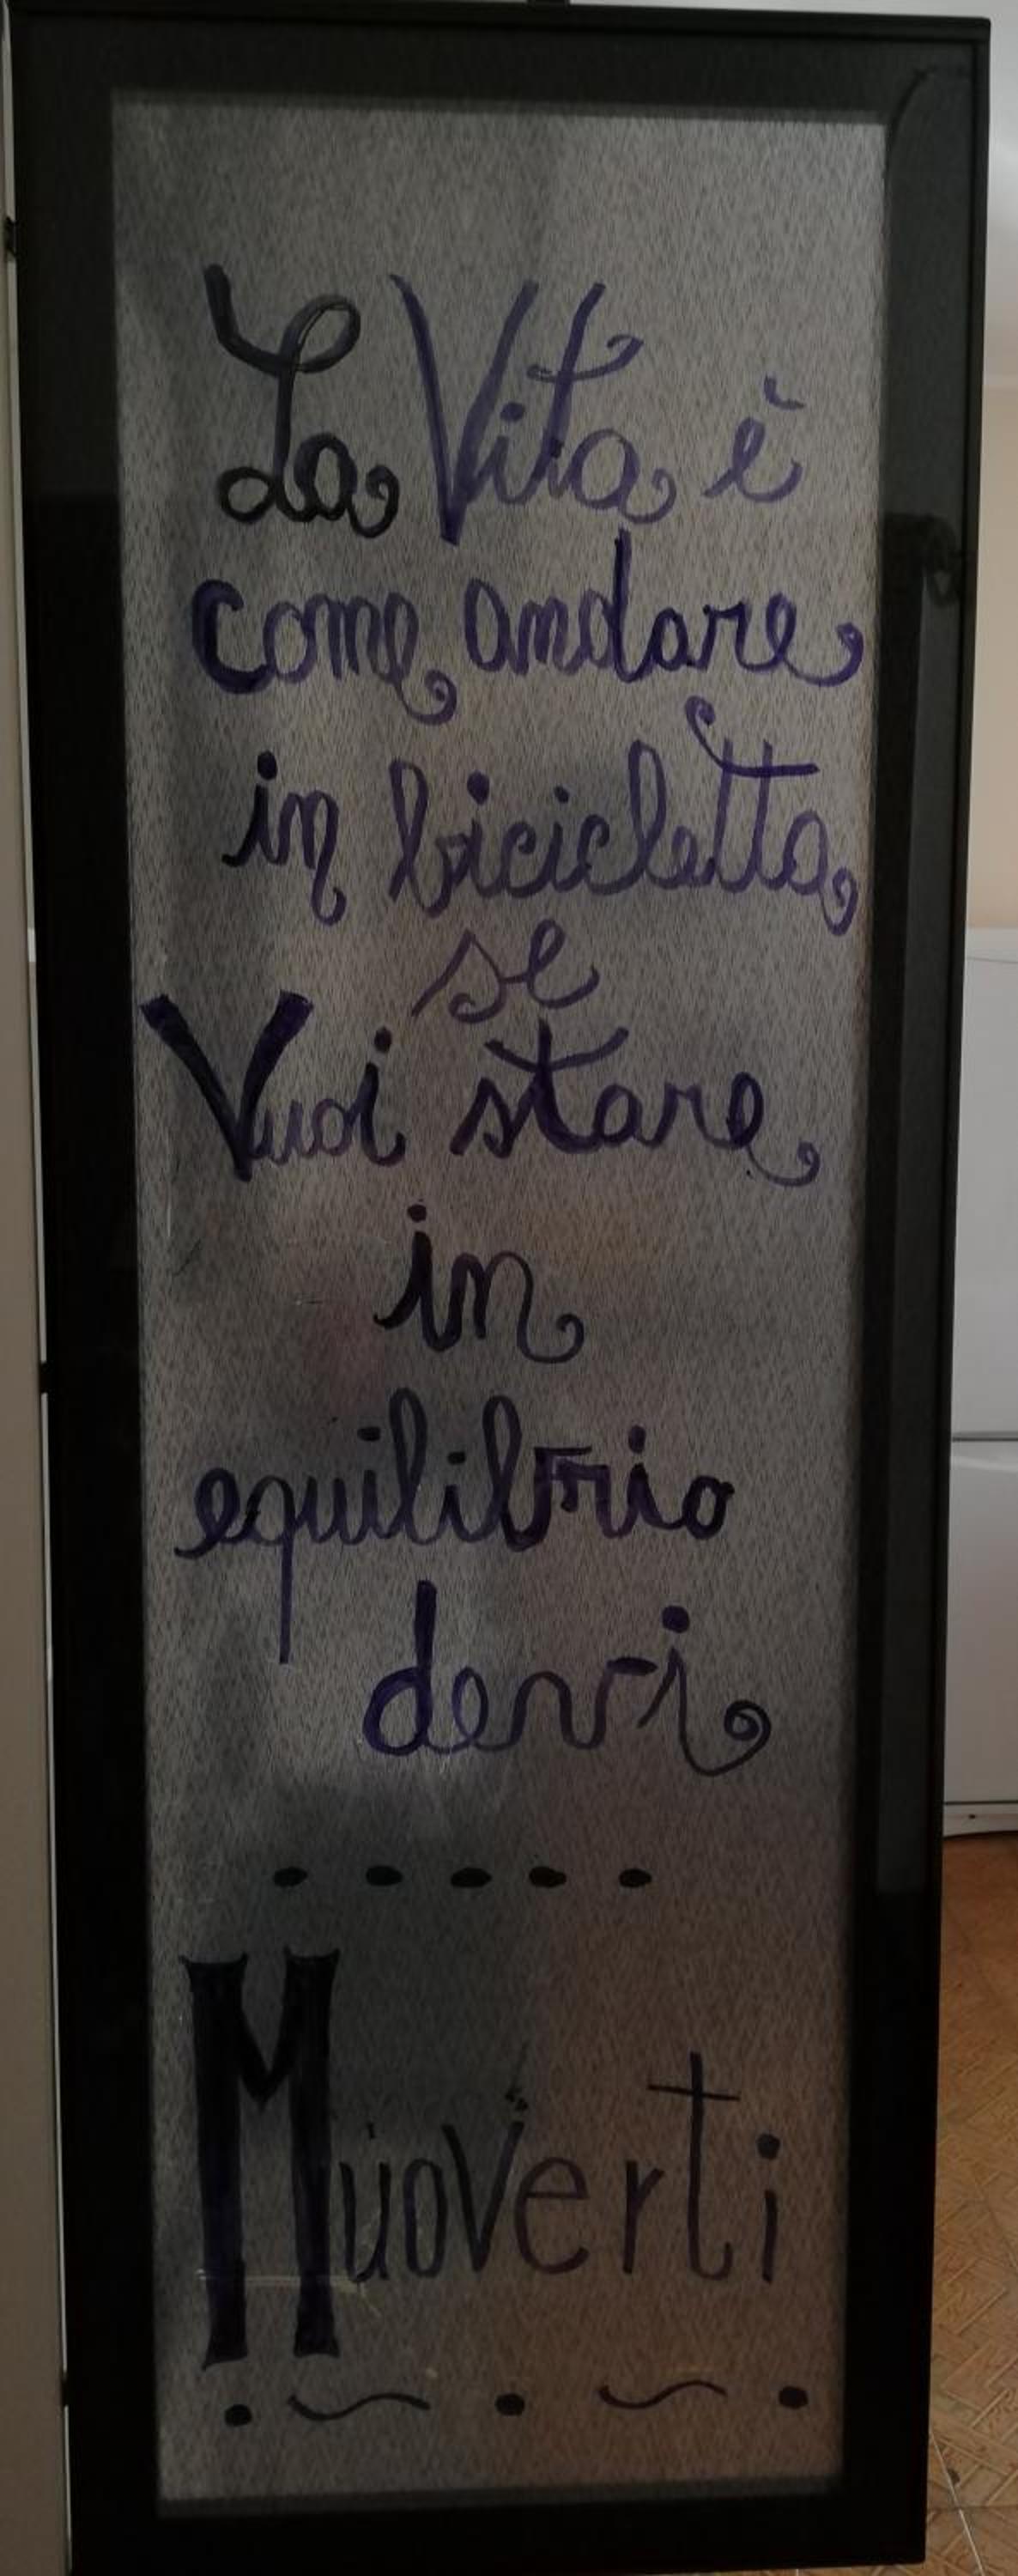 La Vita è
come andare
in bicicletta
se
Vuoi stare
in
equilibrio
devi
.....
Muoverti
. ~ . ~ .